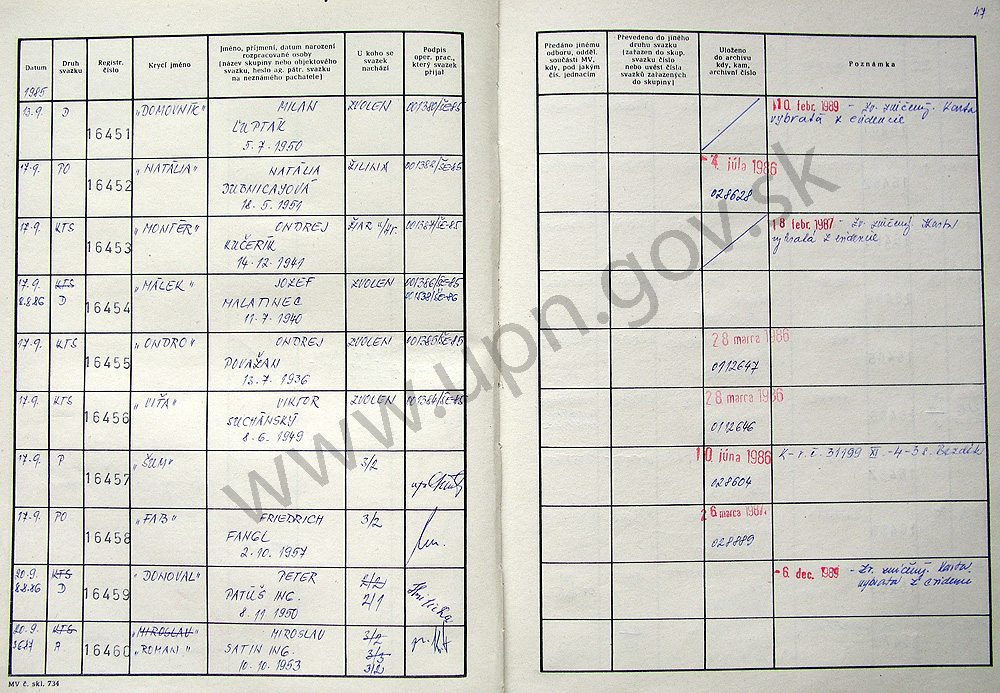 47
Datum
Druh
svazku
Registr.
číslo
Krycí jméno
Jméno, příjmení, datum narození
rozpracované osoby
(název skupiny nebo objektového
svazku, heslo ag. pátr. svazku
na neznámého pachatele)
U koho se
svazek
nachází
Podpis
oper. prac.,
který svazek
přijal
Předáno jinému
odboru, odděl.
součásti MV,
kdy, pod jakým
čís. jednacím
Převedeno do jiného
druhu svazku
(zařazen do skup.
svazku číslo
nebo uvést čísla
svazků zařazených
do skupiny)
Uloženo
do archivu
kdy, kam,
archivní číslo
Poznámka
1985
13.9. D 16451 "DOMOVNÍK" MILAN ZVOLEN 001380/ŠE-85
ĽUPTÁK
5.7.1950
10. febr. 1989 - Zv. zničený. Karta
vybratá z evidencie
17.9. PO 16452 "NATÁLIA" NATÁLIA ŽILINA 001382/ŠE-85
DUBNICAYOVÁ
18.5.1951
4. júla 1986
028628
17.9. KTS 16453 "MONTÉR" ONDREJ ŽIAR n/Hr.
KUČERIK
14.12.1941
18 febr. 1987 - Zv. zničený. Karta
vybratá z evidencie
17.9. KTS 16454 "MÁLEK" JOZEF ZVOLEN 001386/ŠE-85
8.8.86 D MALATINEC 001538/ŠE-86
11.7.1940
17.9. KTS 16455 "ONDRO" ONDREJ ZVOLEN 001385/ŠE-85
POVAŽAN
13.7.1936
28 marca 1986
0112647
17.9. KTS 16456 "VIŤA" VIKTOR ZVOLEN 001384/ŠE-85
SUCHÁNSKÝ
8.6.1949
28 marca 1986
0112646
17.9. P 16457 "ŠUM" 3/2
10. júna 1986 K-r.č. 31199 XI.-4-3 s. Bezdík
028604
17.9. PO 16458 "FAB" FRIEDRICH 3/2
FANGL
2.10.1957
26 marca 1987
028889
20.9. KTS 16459 "DONOVAL" PETER 2/2
8.8.86 D PATÚŠ ING. 2/1
8.11.1950
-6. dec. 1989 - Zv. zničený. Karta
vybratá z evidencie
20.9. KTS 16460 "MIROSLAV" MIROSLAV 3/2
A "ROMAN" SATIN ING. 3/3
10.10.1953 3/2
MV č. skl. 734
www.upn.gov.sk